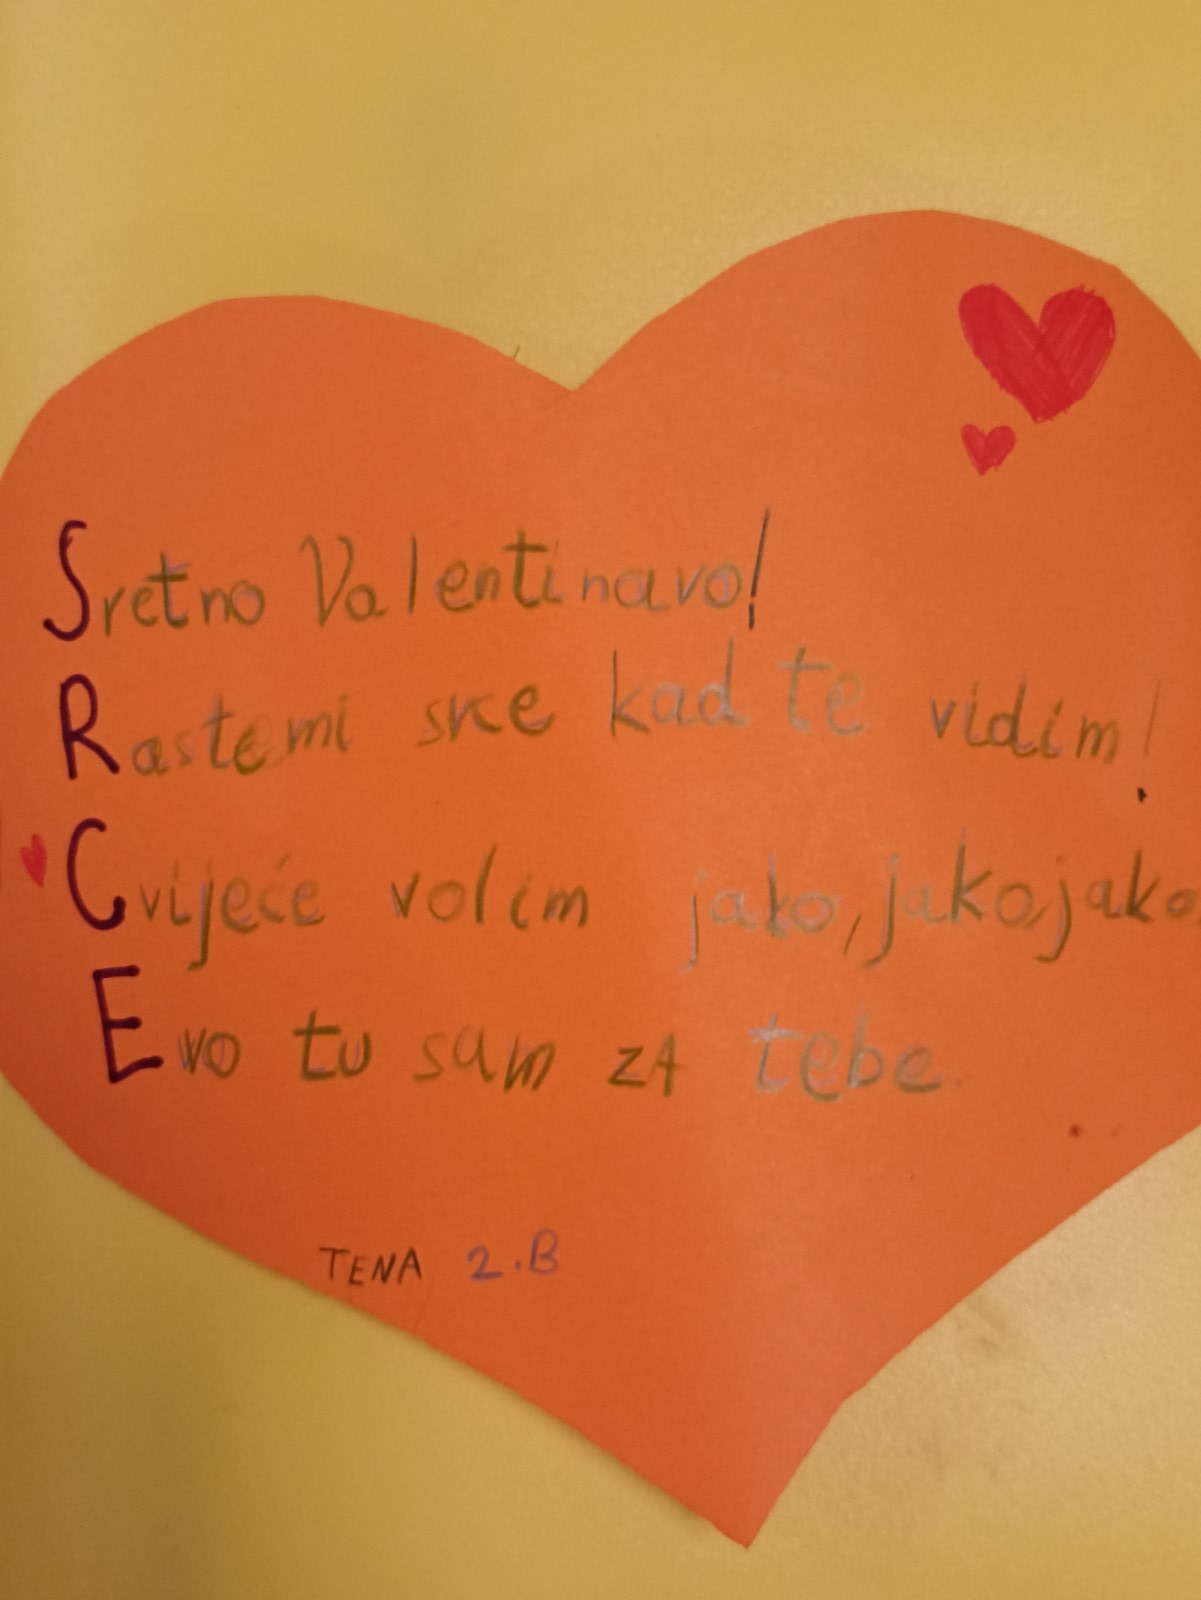 Sretno Valentinavo!
Rastemi srce kad te vidim!
Cvijeće volim jako, jako, jako
Evo tu sam zA tebe.
TENA 2.B